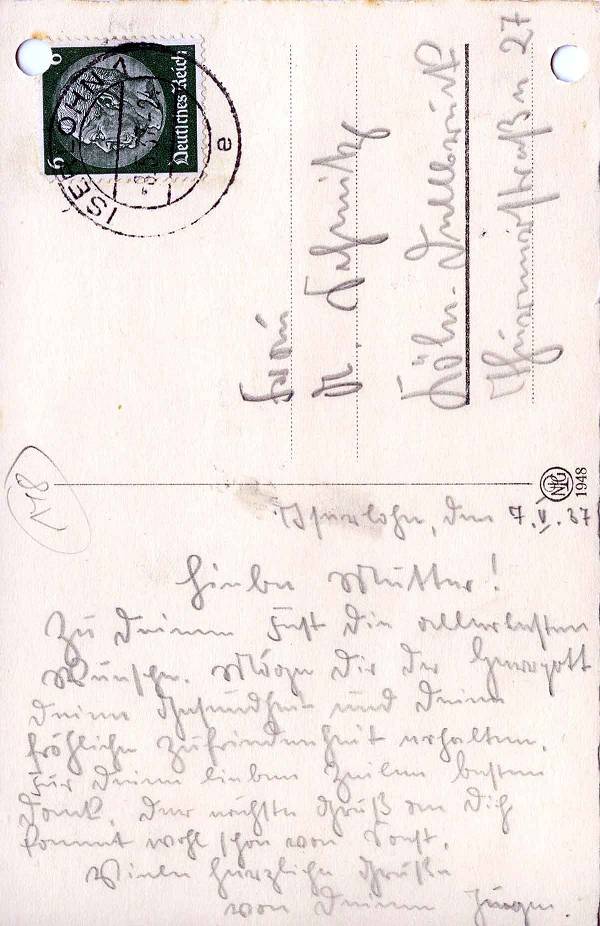 ISERLOHN
Deutsches Reich
6
6
e
Frau
Dr. Schmitz
Köln-Dellbrück
Thurnerstraßen 27
NPG
1948
Iserlohn, den 7.V.37
Liebe Mutter!
Zu Deinem Fest die allerbesten
Wünsche. Möge Dir der Herrgott
Deine Gesundheit und Deine
fröhliche Zufriedenheit erhalten.
Für Deine lieben Zeilen besten
Dank. Der nächste Gruß an Dich
kommt wohl schon von
Viele herzliche Grüße
von Deinem Jürgen.